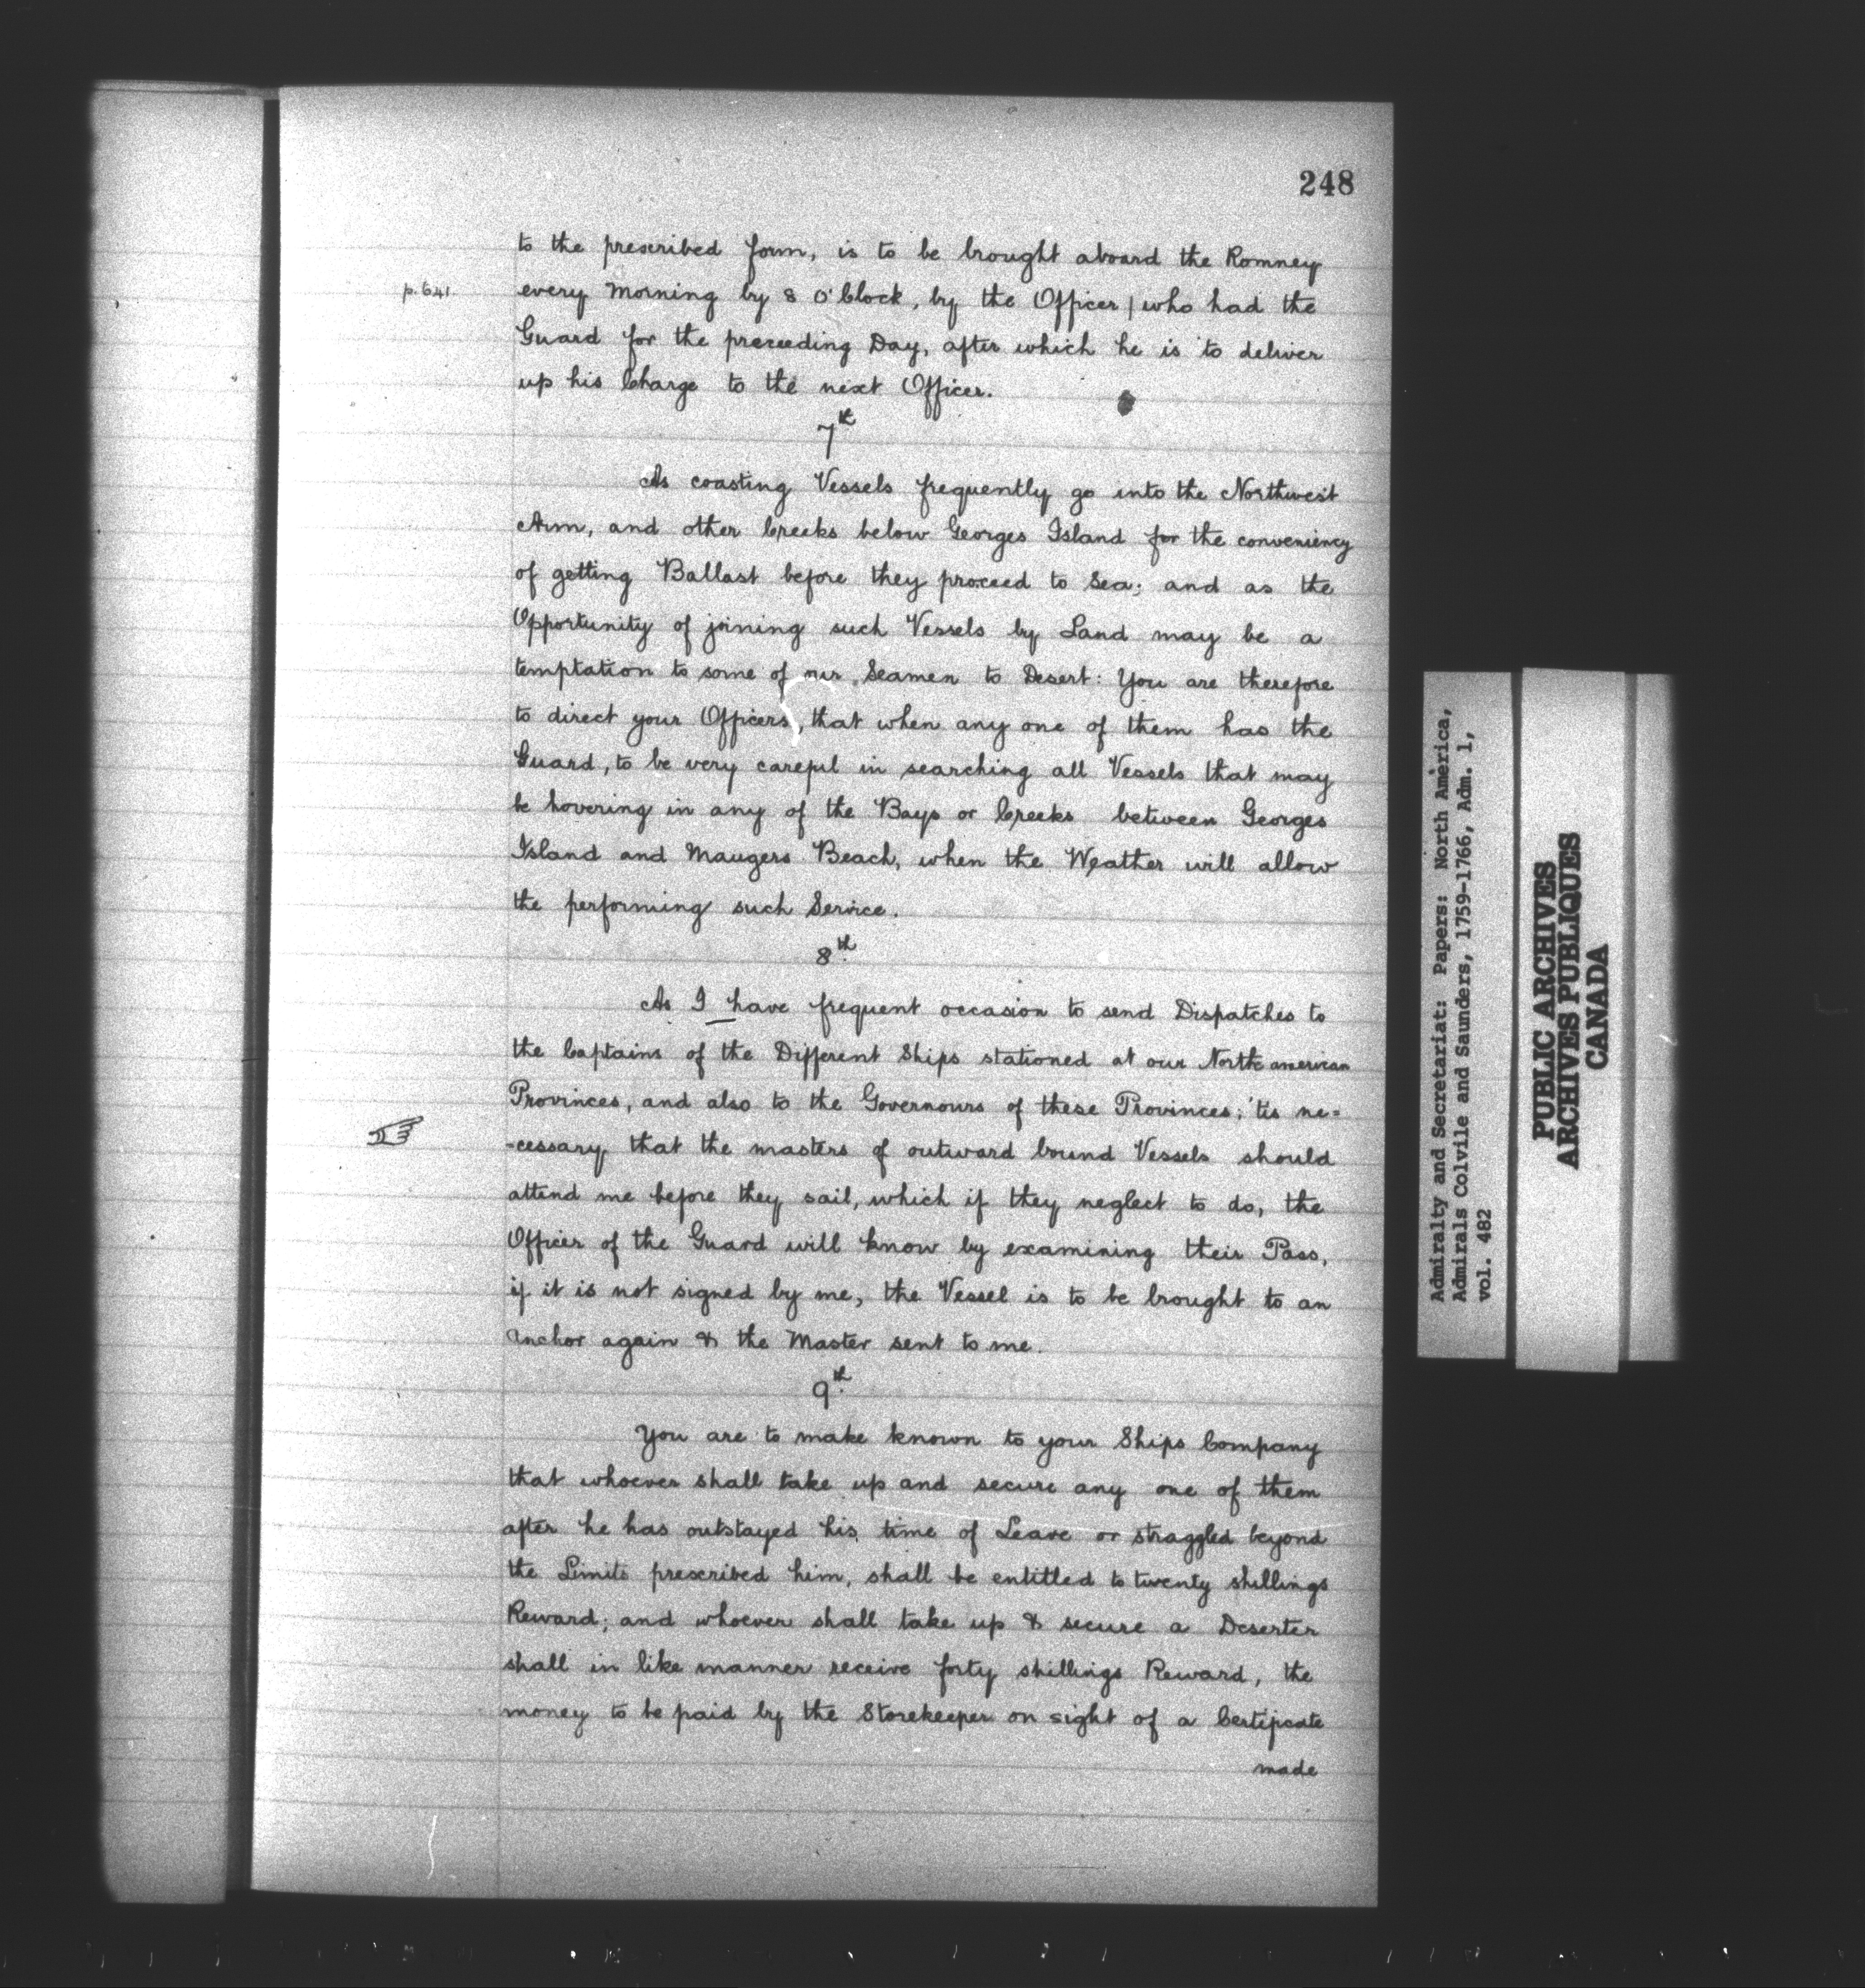 248
to the prescribed form, is to be brought aboard the Romney
p. 641.
every Morning by 8 O'Clock, by the Officer / who had the
Guard for the preceeding Day, after which he is to deliver
up his Charge to the next Officer.
7th
As coasting Vessels frequently go into the Northwest
Arm, and other Creeks below Georges Island for the conveniency
of getting Ballast before they proceed to Sea; and as the
Opportunity of joining such Vessels by Land may be a
temptation to some of our Seamen to Desert: You are therefore
to direct your Officers, that when any one of them has the
Guard, to be very careful in searching all Vessels that may
be hovering in any of the Bays or Creeks between Georges
Island and Maugers Beach, when the Weather will allow
the performing such Service.
8th
As I have frequent occasion to send Dispatches to
the Captains of the Different Ships stationed at our North american
Provinces, and also to the Governours of these Provinces; 'tis ne=
-cessary that the masters of outward bound Vessels should
attend me before they sail, which if they neglect to do, the
Officer of the Guard will know by examining their Pass,
if it is not signed by me, the Vessel is to be brought to an
Anchor again & the Master sent to me.
9th
You are to make known to your Ships Company
that whoever shall take up and secure any one of them
after he has outstayed his time of Leave or straggled beyond
the Limits prescribed him, shall be entitled to twenty shillings
Reward; and whoever shall take up & secure a Deserter
shall in like manner receive forty shillings Reward, the
money to be paid by the Storekeeper on sight of a Certificate
made
Admiralty and Secretariat: Papers: North America,
Admirals Colvile and Saunders, 1759-1766, Adm. 1,
vol. 482
PUBLIC ARCHIVES
ARCHIVES PUBLIQUES
CANADA